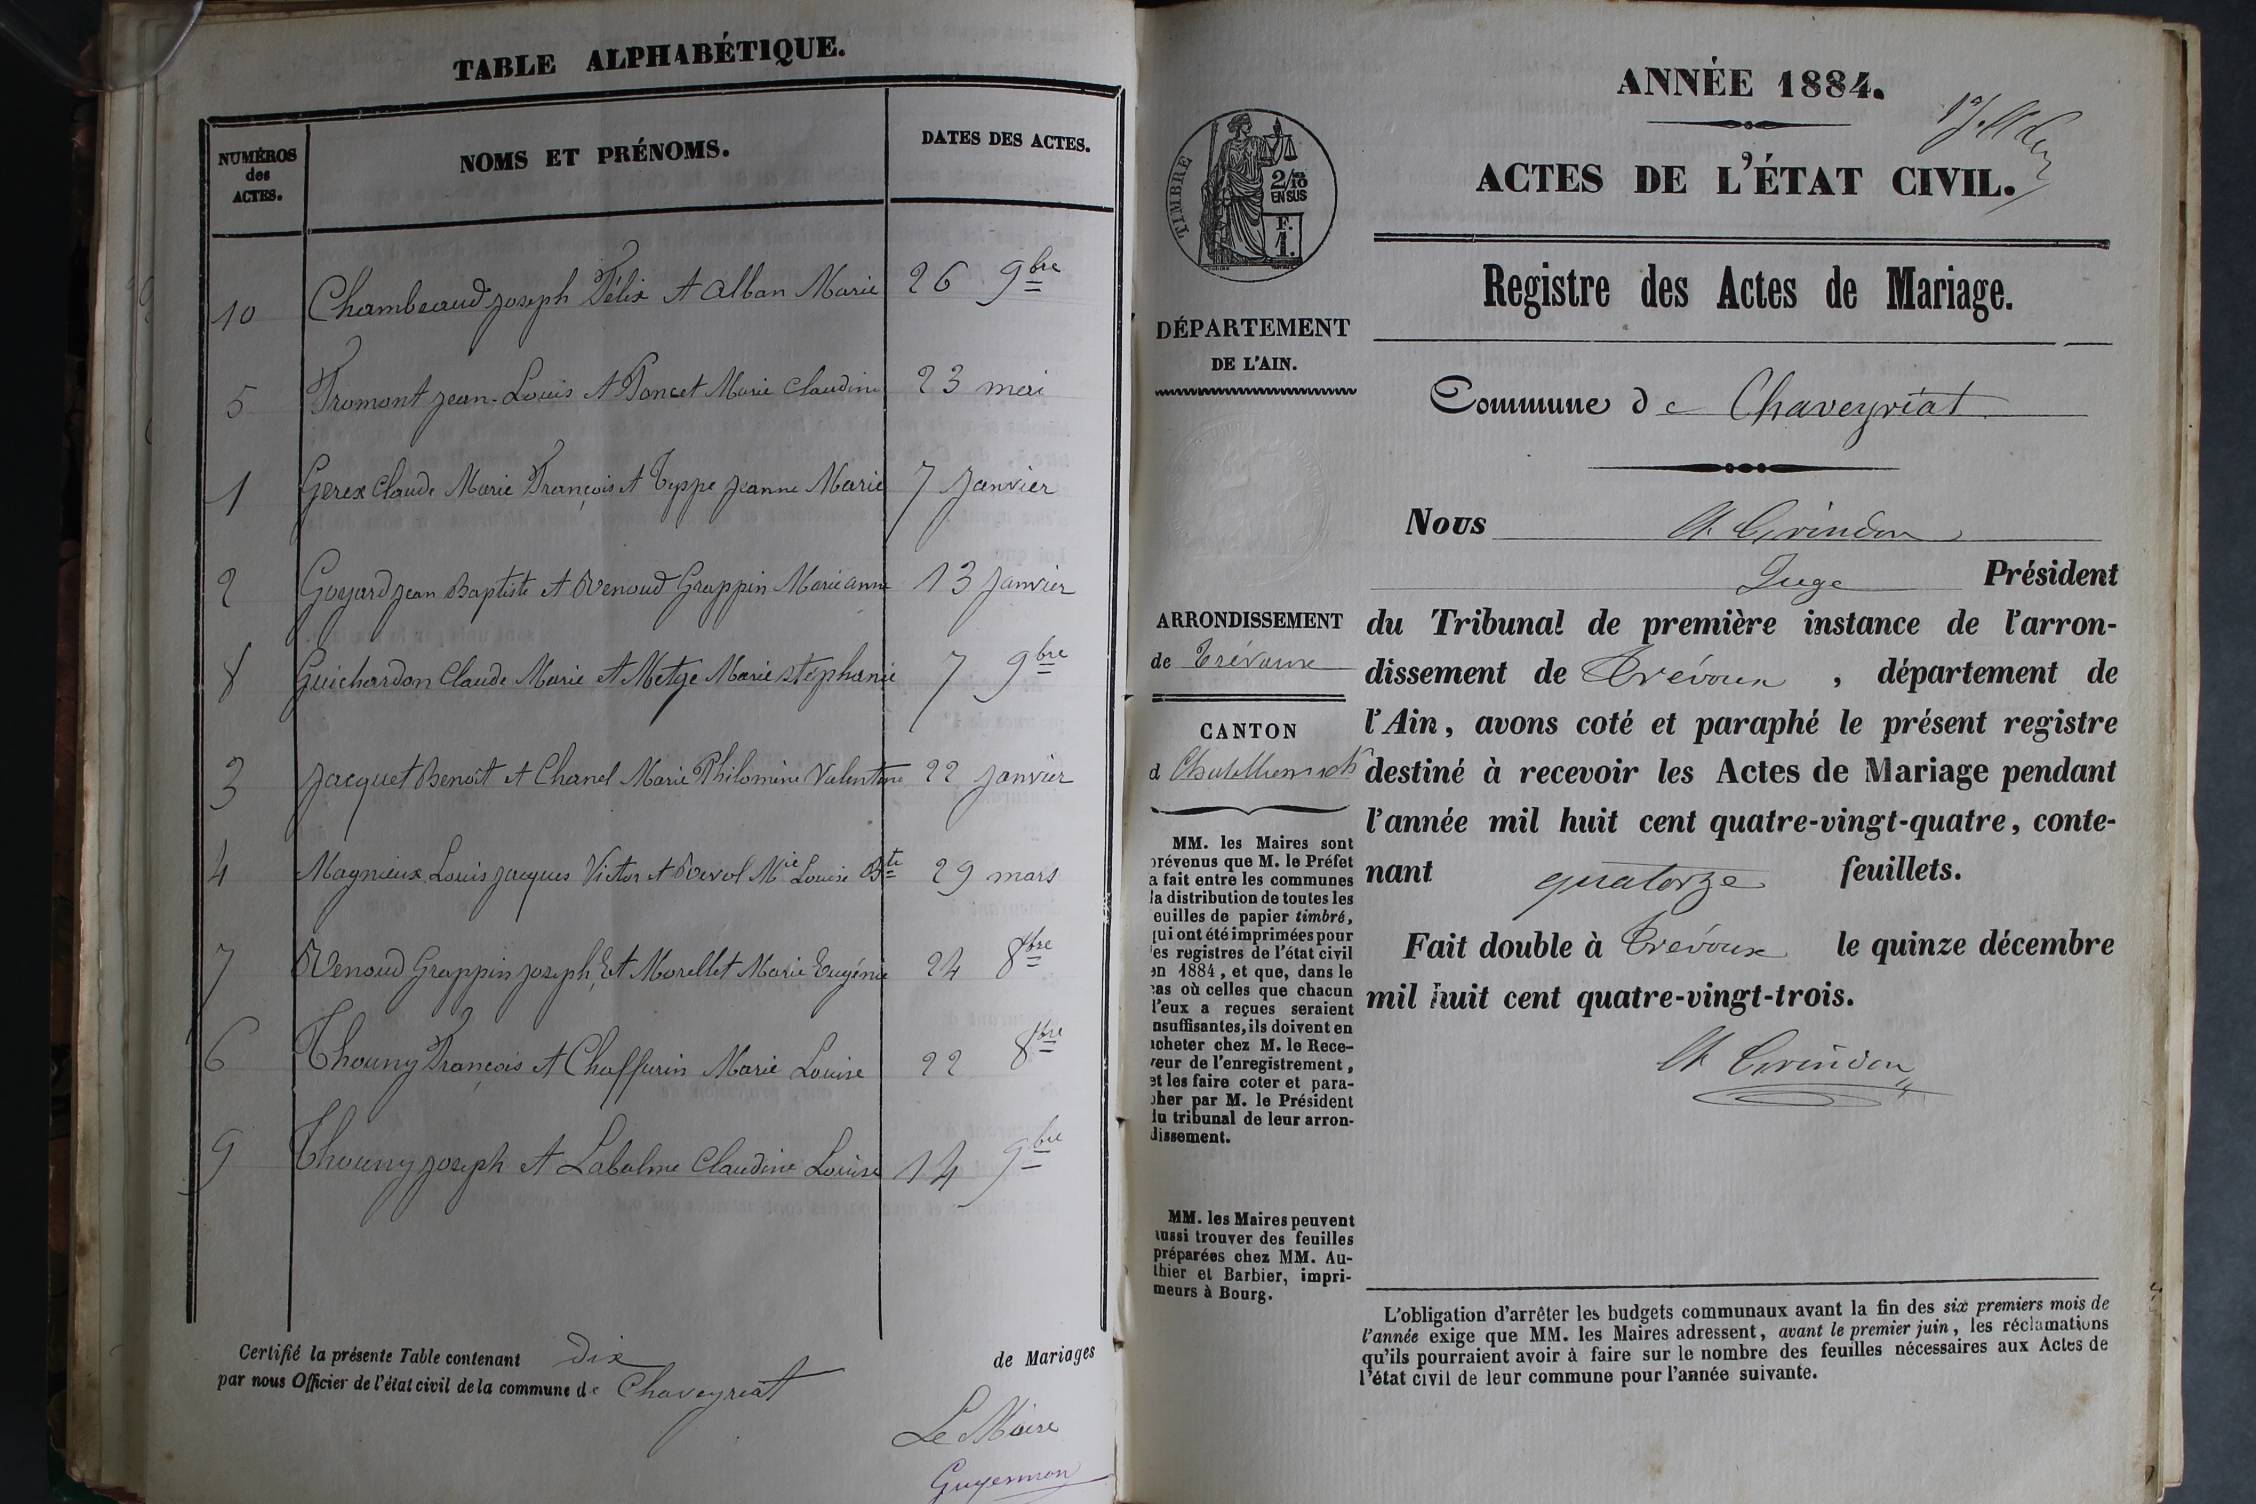 TABLE ALPHABÉTIQUE.
NUMÉROS des ACTES.
NOMS ET PRÉNOMS.
DATES DES ACTES.
10 Chambeaud Joseph Félix et Alban Marie 26 9bre
5 Fromont Jean-Louis et Poncet Marie Claudine 23 mai
1 Gerex Claude Marie François et Typpe Jeanne Marie 7 Janvier
2 Goyard Jean Baptiste et Renoud Grappin Marie anne 13 Janvier
8 Guichardon Claude Marie et Metge Marie stéphanie 7 9bre
3 Jacquet Benoît et Chanel Marie Philomine Valentine 22 Janvier
4 Magnieux Louis Jacques Victor et Revol Mie Louise Bte 29 mars
7 Renoud Grappin Joseph, et Morellet Marie Eugénie 24 8bre
6 Thouny François et Chaffurin Marie Louise 22 8bre
9 Thouny Joseph et Labalme Claudine Louise 14 9bre
Certifié la présente Table contenant dix de Mariages
par nous Officier de l'état civil de la commune de Chaveyriat
Le Maire
Guyennon
ANNÉE 1884.
ACTES DE L'ÉTAT CIVIL.
TIMBRE
2/10
EN SUS
F.
1.
Registre des Actes de Mariage.
DÉPARTEMENT
DE L'AIN.
Commune de Chaveyriat
Nous
Juge Président
ARRONDISSEMENT
de Trévoux
CANTON
d
du Tribunal de première instance de l'arron-
dissement de Trévoux, département de
l'Ain, avons coté et paraphé le présent registre
destiné à recevoir les Actes de Mariage pendant
l'année mil huit cent quatre-vingt-quatre, conte-
nant quatorze feuillets.
Fait double à Trévoux le quinze décembre
mil huit cent quatre-vingt-trois.
MM. les Maires sont
prévenus que M. le Préfet
a fait entre les communes
la distribution de toutes les
euilles de papier timbré,
qui ont été imprimées pour
les registres de l'état civil
en 1884, et que, dans le
cas où celles que chacun
l'eux a reçues seraient
nsuffisantes, ils doivent en
acheter chez M. le Rece-
veur de l'enregistrement,
et les faire coter et para-
pher par M. le Président
du tribunal de leur arron-
dissement.
MM. les Maires peuvent
aussi trouver des feuilles
préparées chez MM. Au-
thier et Barbier, impri-
meurs à Bourg.
L'obligation d'arrêter les budgets communaux avant la fin des six premiers mois de
l'année exige que MM. les Maires adressent, avant le premier juin, les réclamations
qu'ils pourraient avoir à faire sur le nombre des feuilles nécessaires aux Actes de
l'état civil de leur commune pour l'année suivante.